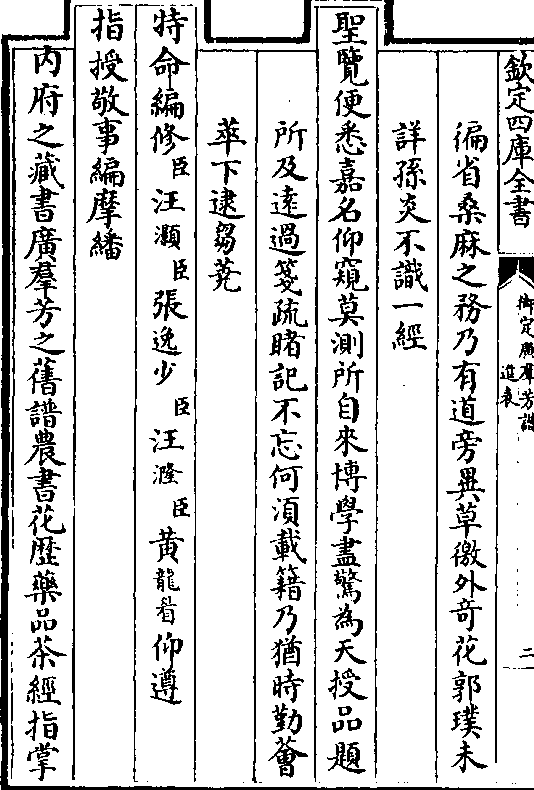 欽定四庫全書
御定廣羣芳譜
進表
二
徧省桑麻之務乃有道旁異草徼外奇花郭璞未
詳孫炎不識一經
聖覽便悉嘉名仰窺莫測所自來博學盡驚為天授品題
所及遠過箋疏睹記不忘何湏載籍乃猶時勤薈
萃下逮芻蕘
特命編修臣汪灝臣張逸少臣汪漋臣黄龍睂仰遵
指授敬事編摩繙
内府之藏書廣羣芳之舊譜農書花歴藥品茶經指掌